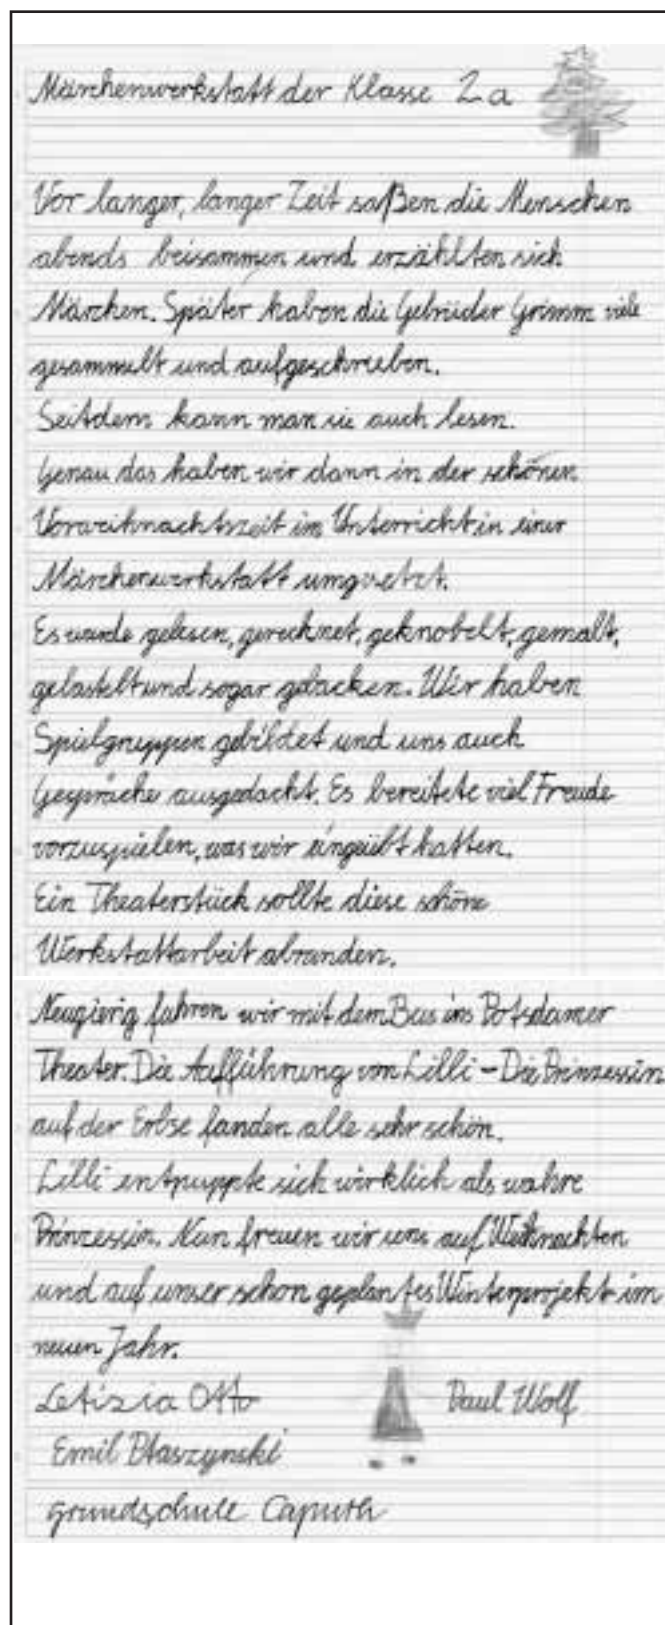 Märchenwerkstatt der Klasse 2a
Vor langer, langer Zeit saßen die Menschen
abends beisammen und erzählten sich
Märchen. Später haben die Gebrüder Grimm viele
gesammelt und aufgeschrieben.
Seitdem kann man sie auch lesen.
Genau das haben wir dann in der schönen
Vorweihnachtszeit im Unterricht in einer
Märchenwerkstatt umgesetzt.
Es wurde gelesen, gerechnet, geknobelt, gemalt,
gebastelt und sogar gebacken. Wir haben
Spielgruppen gebildet und uns auch
Gespräche ausgedacht. Es bereitete viel Freude
vorzuspielen, was wir eingeübt hatten.
Ein Theaterstück sollte diese schöne
Werkstattarbeit abrunden.
Neugierig fahren wir mit dem Bus ins Potsdamer
Theater. Die Aufführung von Lilli – Die Prinzessin
auf der Erbse fanden alle sehr schön.
Lilli entpuppte sich wirklich als wahre
Prinzessin. Nun freuen wir uns auf Weihnachten
und auf unser schon geplantes Winterprojekt im
neuen Jahr.
Letizia Otto Paul Wolf
Emil Btaszynski
Grundschule Caputh